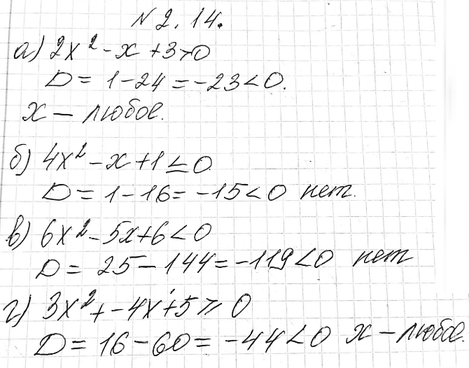 №2.14.
а) 2x² - x + 3 > 0
D = 1 - 24 = -23 < 0.
x — любое.
б) 4x² - x + 1 ≤ 0
D = 1 - 16 = -15 < 0 нет.
в) 6x² - 5x + 6 < 0
D = 25 - 144 = -119 < 0 нет
г) 3x² + -4x + 5 ≥ 0
D = 16 - 60 = -44 < 0 x — любое.